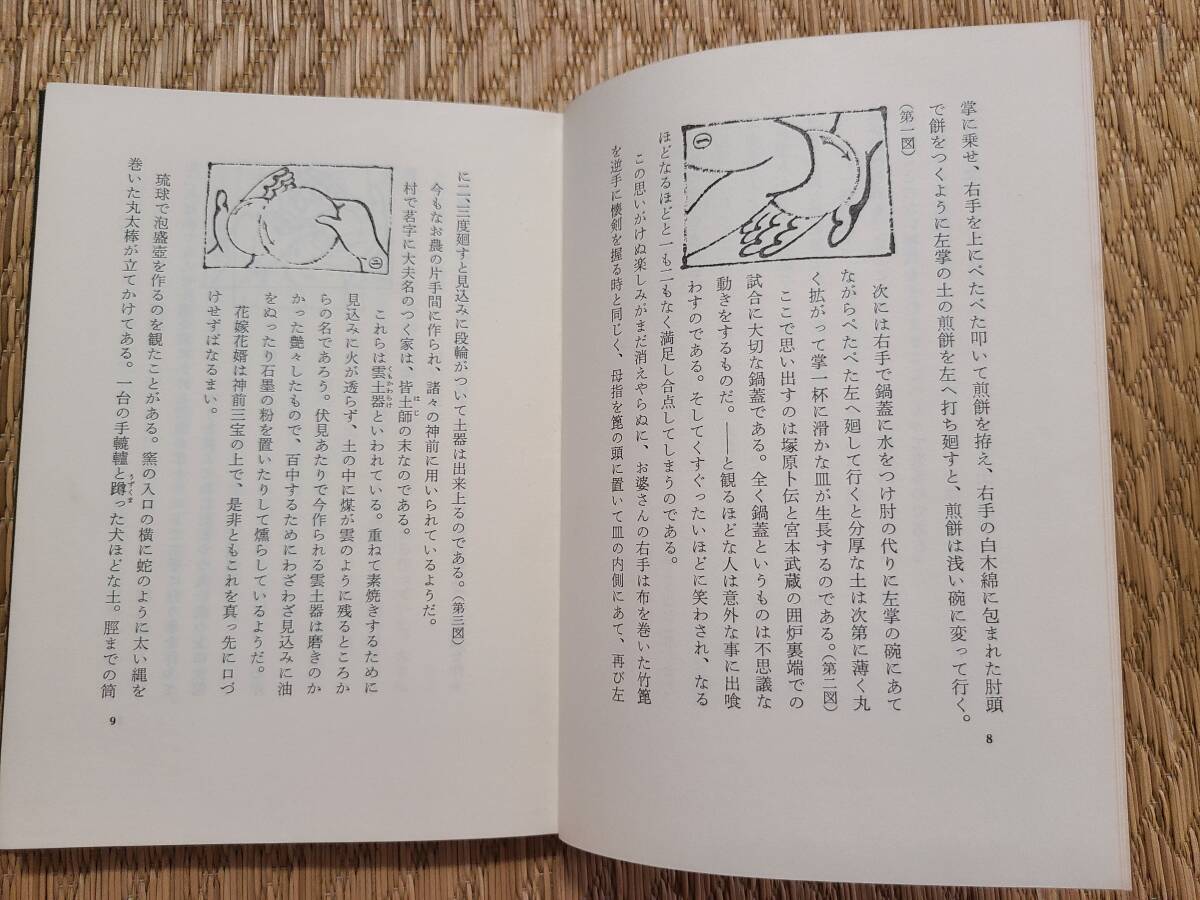 掌に乗せ、右手を上にぺたぺた叩いて煎餅を拵え、右手の白木綿に包まれた肘頭
で餅をつくように左掌の土の煎餅を左へ打ち廻すと、煎餅は浅い碗に変って行く。
（第一図）
㊀
次には右手で鍋蓋に水をつけ肘の代りに左掌の碗にあて
ながらぺたぺた左へ廻して行くと分厚な土は次第に薄く丸
く拡がって掌一杯に滑かな皿が生長するのである。（第二図）
ここで思い出すのは塚原卜伝と宮本武蔵の囲炉裏端での
試合に大切な鍋蓋である。全く鍋蓋というものは不思議な
動きをするものだ。――と観るほどな人は意外な事に出喰
わすのである。そしてくすぐったいほどに笑わされ、なる
ほどなるほどと一も二もなく満足し合点してしまうのである。
この思いがけぬ楽しみがまだ消えやらぬに、お婆さんの右手は布を巻いた竹篦
を逆手に懐剣を握る時と同じく、母指を篦の頭に置いて皿の内側にあて、再び左
8
に二、三度廻すと見込みに段輪がついて土器は出来上るのである。（第三図）
今もなお農の片手間に作られ、諸々の神前に用いられているようだ。
村で苗字に大夫名のつく家は、皆土師の末なのである。
はじ
㊁
これらは雲土器といわれている。重ねて素焼きするために
くもかわらけ
見込みに火が透らず、土の中に煤が雲のように残るところか
らの名であろう。伏見あたりで今作られる雲土器は磨きのか
かった艶々したもので、百中するためにわざわざ見込みに油
をぬったり石墨の粉を置いたりして燻らしているようだ。
花嫁花婿は神前三宝の上で、是非ともこれを真っ先に口づ
けせずばなるまい。
琉球で泡盛壺を作るのを観たことがある。窯の入口の横に蛇のように太い縄を
巻いた丸太棒が立てかけてある。一台の手轆轤と蹲った犬ほどな土。脛までの筒
うずくま
9